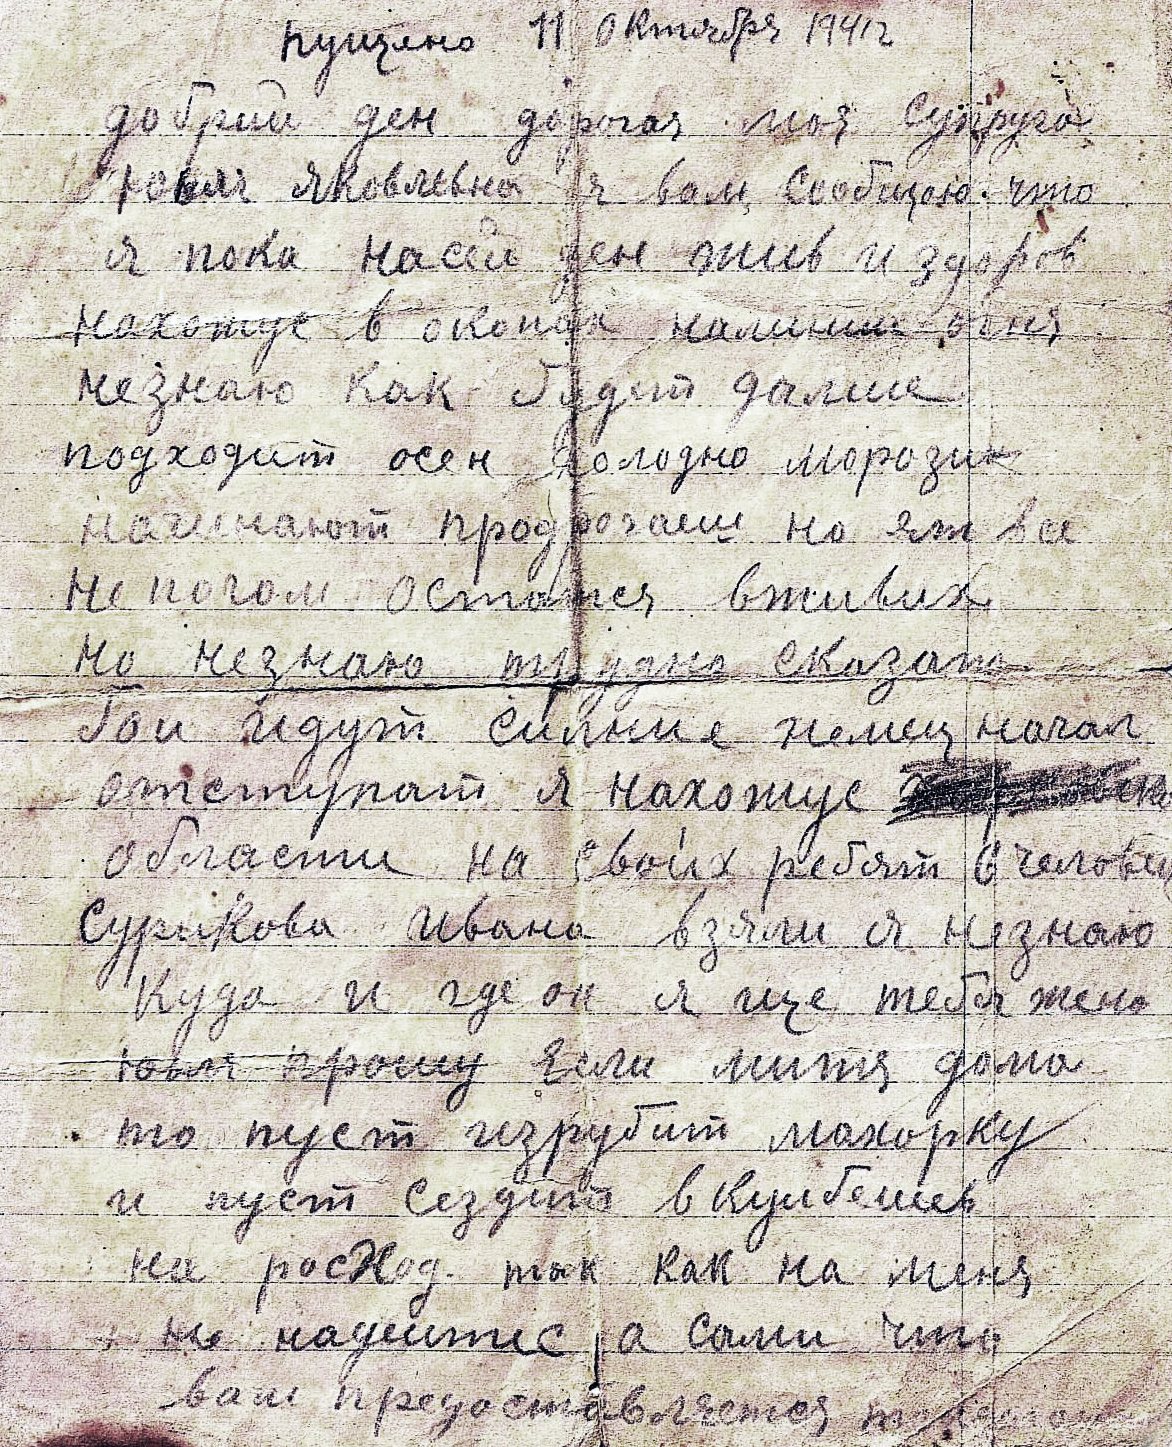 пущено 11 Октября 1941г
добрий ден дорогая моя Супруга
ювля яковлевна я вам Сообщою что
я пока насей ден жив и здоров
нахожус в окопах налинии огня
незнаю как будет далше
подходит осен холодно морозик
начинают продрогаеш но
не Остатся вживих
но незнаю трудно сказат
бои идут силние немец начал
отступат я нахожус
области на своих ребят 6 человек
Сурикова Ивана взяли я незнаю
Куда и где он я ище тебя жено
ювля прошу Если митя дома
то пуст изрубит махорку
и пуст сездит в Куибешев
на росХод. так как на меня
не надеитес а сами что
вам предоставляется